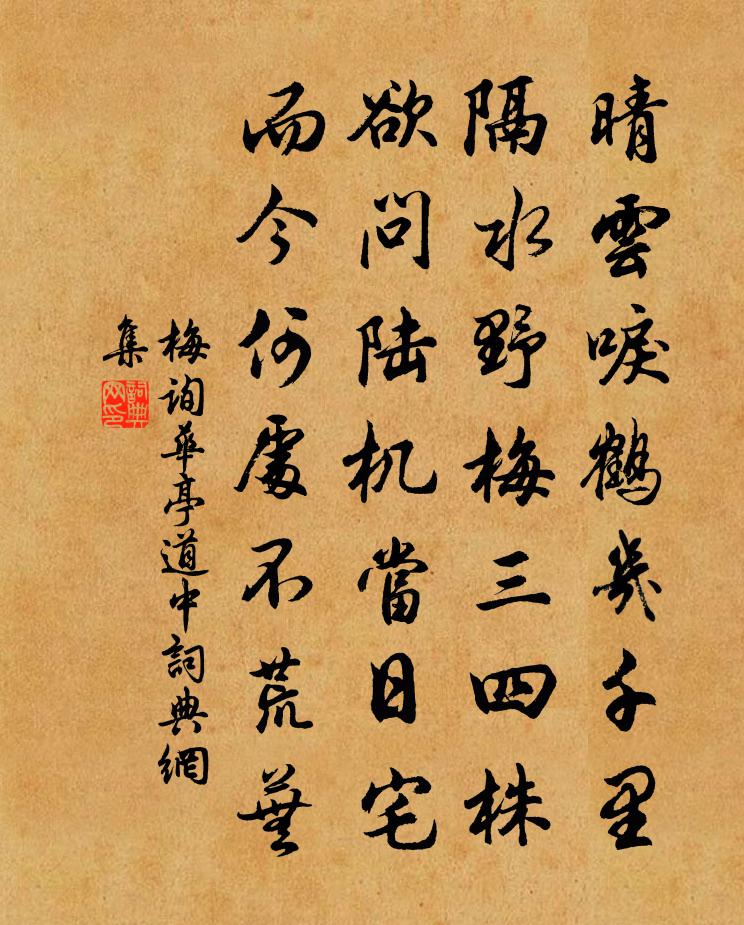 晴雲唳鶴幾千里
隔水野梅三四株
欲問陆机當日宅
而今何處不荒蕪
梅詢華亭道中詞典網
集
詞典
网印